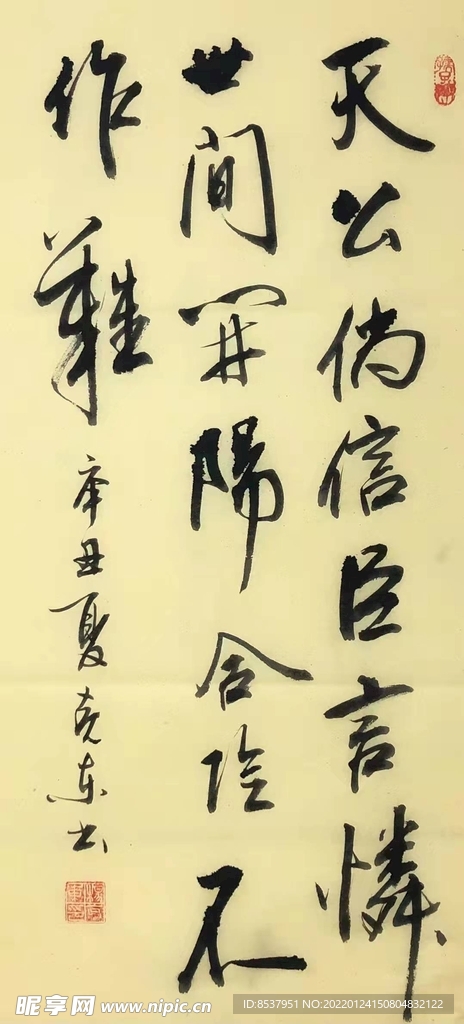 天公倘信臣言憐
世間開陽合陰不
作難
辛丑夏克东书
昵享网 www.nipic.cn
ID:8537951 NO:20220124150804832122